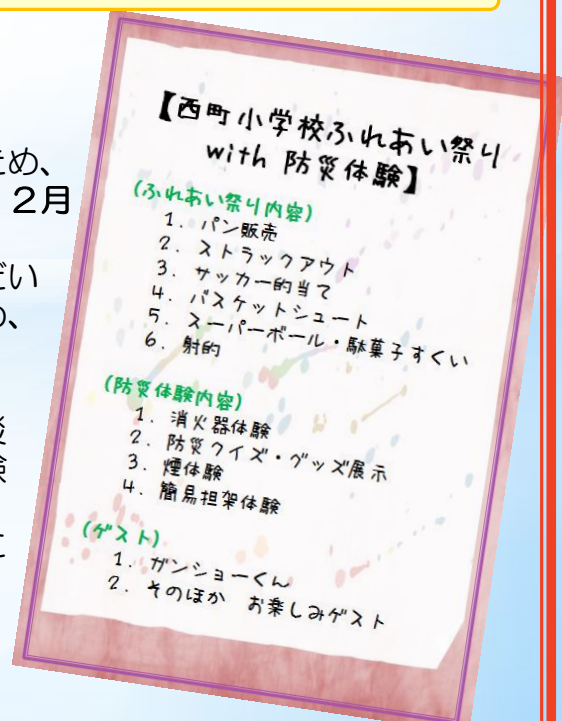 ため、
2月
だい
め、
災
験
に
【西町小学校ふれあい祭り
with 防災体験】
(ふれあい祭り内容)
1. パン販売
2. ストラックアウト
3. サッカー的当て
4. バスケットシュート
5. スーパーボール・駄菓子すくい
6. 射的
(防災体験内容)
1. 消火器体験
2. 防災クイズ・グッズ展示
3. 煙体験
4. 簡易担架体験
(ゲスト)
1. ガンショーくん
2. そのほか お楽しみゲスト